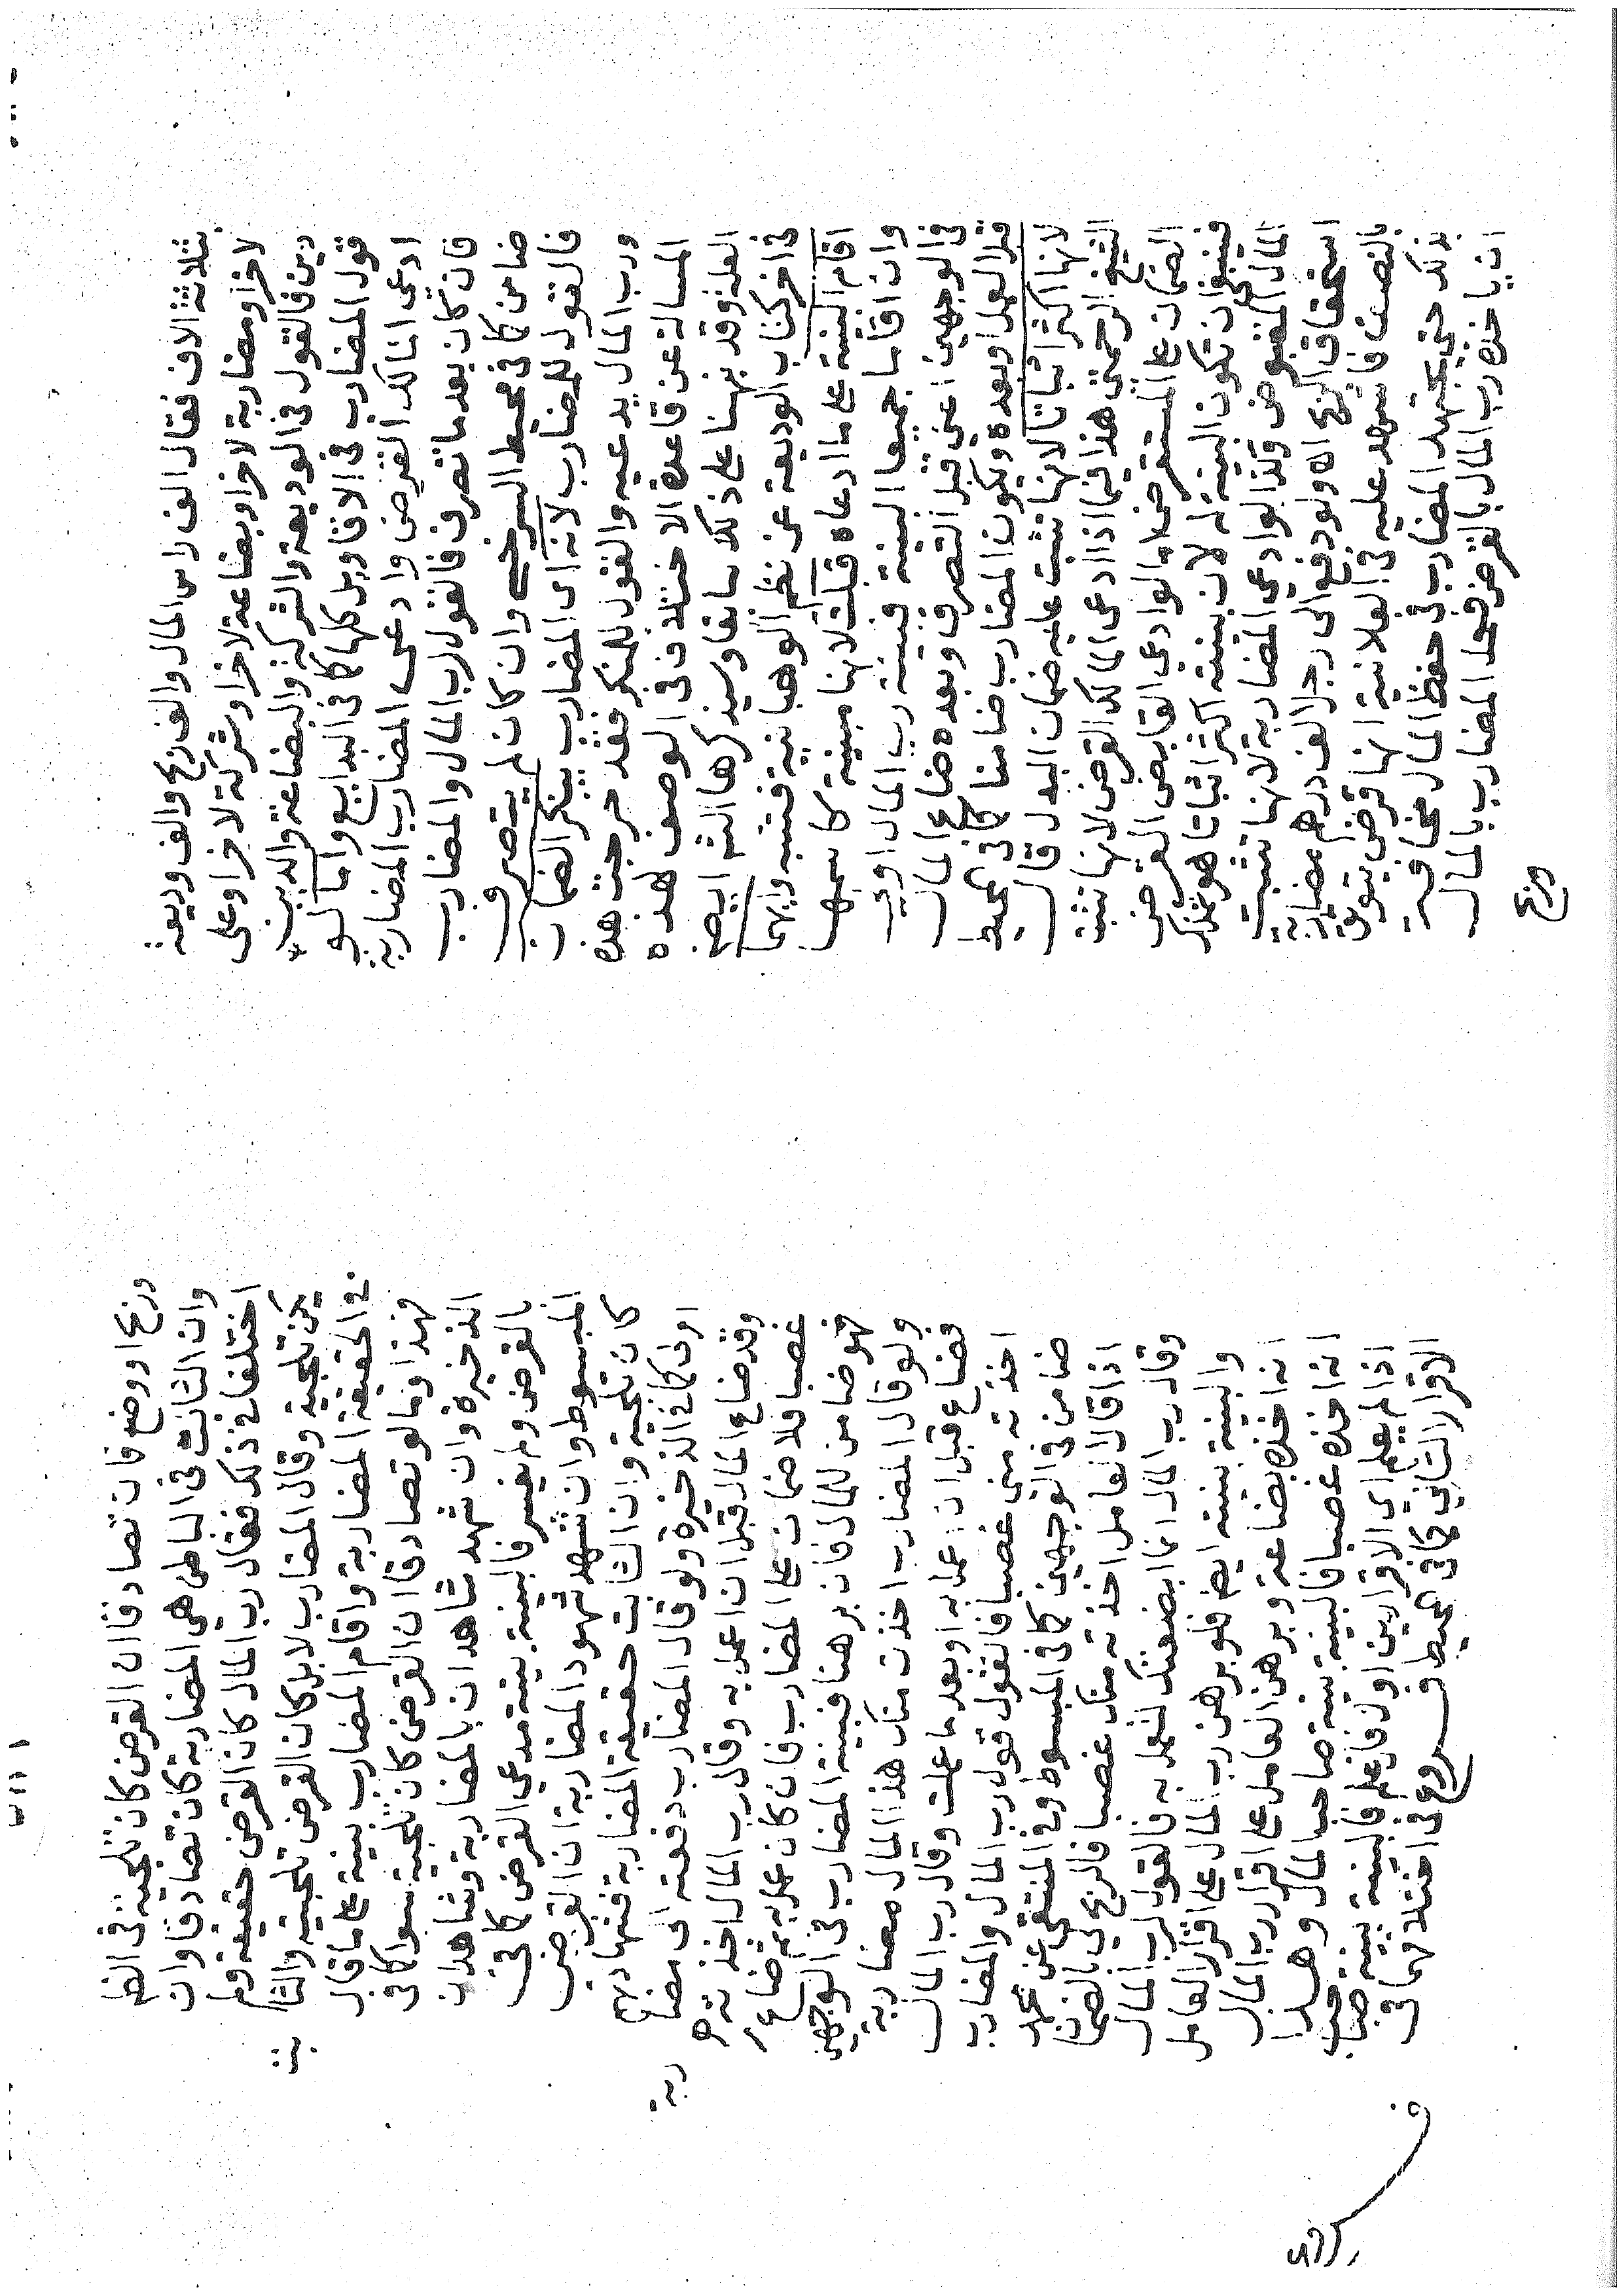 بثلاثة الاف فقال الف راس المال والف ربح والف وديعة
لاخر او مضاربة لاخر او بضاعة لاخر او شركة لاخر او على
دين فالقول في الوديعة والشركة والبضاعة والدين
قول المضارب في الاقاويل كلها كما في البدايع واما لو
ادعى المالك القرض وادعى المضارب المضاربة
فان كان بعد ما تصرف فالقول لرب المال والمضارب
ضامن كما في محيط السرخسي وان كان لم يتصرف
فالقول للمضارب لانه اى المضارب ينكر الضمان
ورب المال يدعيه والقول للمنكر فقد خرجت هذه
المسالة عن قاعدة الاختلاف في الوصف هذه
العلة وقد نبهنا على ذلك سابقا وسيذكرها الشـ ايضـ
في اخر كتاب الوديعة عن نظم الوهبانية فتنبه وايهما
اقام البينة على ما ادعاه قبلت لانها مبينة كاسمها
وان اقاما جميعا البينة فبينة رب المال اولى
في الوجهين اعني قبل التصرف وبعده ضاع المال
قبل العمل او بعده ويكون المضارب ضامنا كما في المحيط
لانها اكثر اثباتا لانها تثبت عليه ضمان البدل قال
الشيخ الرحمتي هذا فيما اذا ادعى المالك القرض لانها تثبت
الضمان على المستقرض اما لو ادعى القابض القرض
فينبغي ان تكون البينة له لان بينته اكثر اثباتا هو تملك
المال المقبوض وكذا لو ادعى المضاربة لانها تثبت
استحقاق الربح اه ولو دفع الى رجل الف درهم مضاربة
بالنصف فاشهد عليه في العلانية انها قرض يتوثق
بذلك حتى يجتهد المضارب في حفظ المال مخافة
ان ياخذه رب المال بالقرض فعمل المضارب بالمال
وربح
وربح او وضع فان تصادقا ان القرض كان تلجئة في الظا
وان الثابت في الباطن هي المضاربة كان تصادقا وان
اختلفا في ذلك فقال رب المال كان القرض حقيقة ولم
يكن تلجية وقال المضارب لا بل كان القرض تلجية والثابت
في الحقيقة المضاربة واقام المضارب بينة على ما قال
فهذا وما لو تصادقا ان القرض كان تلجئة سوا كما في
الذخيرة وان شهد شاهدان بالمضاربة وشاهدان
بالقرض ولم يفسر فالبينة بينة مدعي القرض كما في
المبسوط وان شهد شهود المضاربة ان القرض
كان تلجية وان الثابت حقيقة المضاربة فشهادتهم
اولى كما في الذخيرة ولو قال المضارب دفعته الى مضاربة
وقد ضاع المال قبل ان اعمل به وقال رب المال اخذته
غصبا فلا ضمان على المضارب فان كان عمل به ثم ضاع
فهو ضامن للمال فان برهنا فبينة المضارب في الوجهين
ولو قال المضارب اخذت منك هذا المال مضاربة
فضاع قبل ان اعمل به او بعد ما عملت وقال رب المال
اخذته مني غصبا فالقول قول رب المال والمضارب
ضامن في الوجهين كما في المبسوط وفي المنتقى عن محمد
اذا قال العامل اخذته منك غصبا فالربح لي بالضمان
وقال رب المال انما ابضعتك لتعمل به فالقول لرب المال
والبينة بينته ايضـ فلو برهن رب المال على اقرار العامل
انه اخذه بضاعة وبرهن العامل على اقرار رب المال
انه اخذه غصبا فالبينة بينة صاحب المال وهذا
اذا لم يعلم اي الاقرارين اول فان علم فالبينة بينة صاحب
الاقرار الثاني كما في المحيط فروع في اختلافهما في